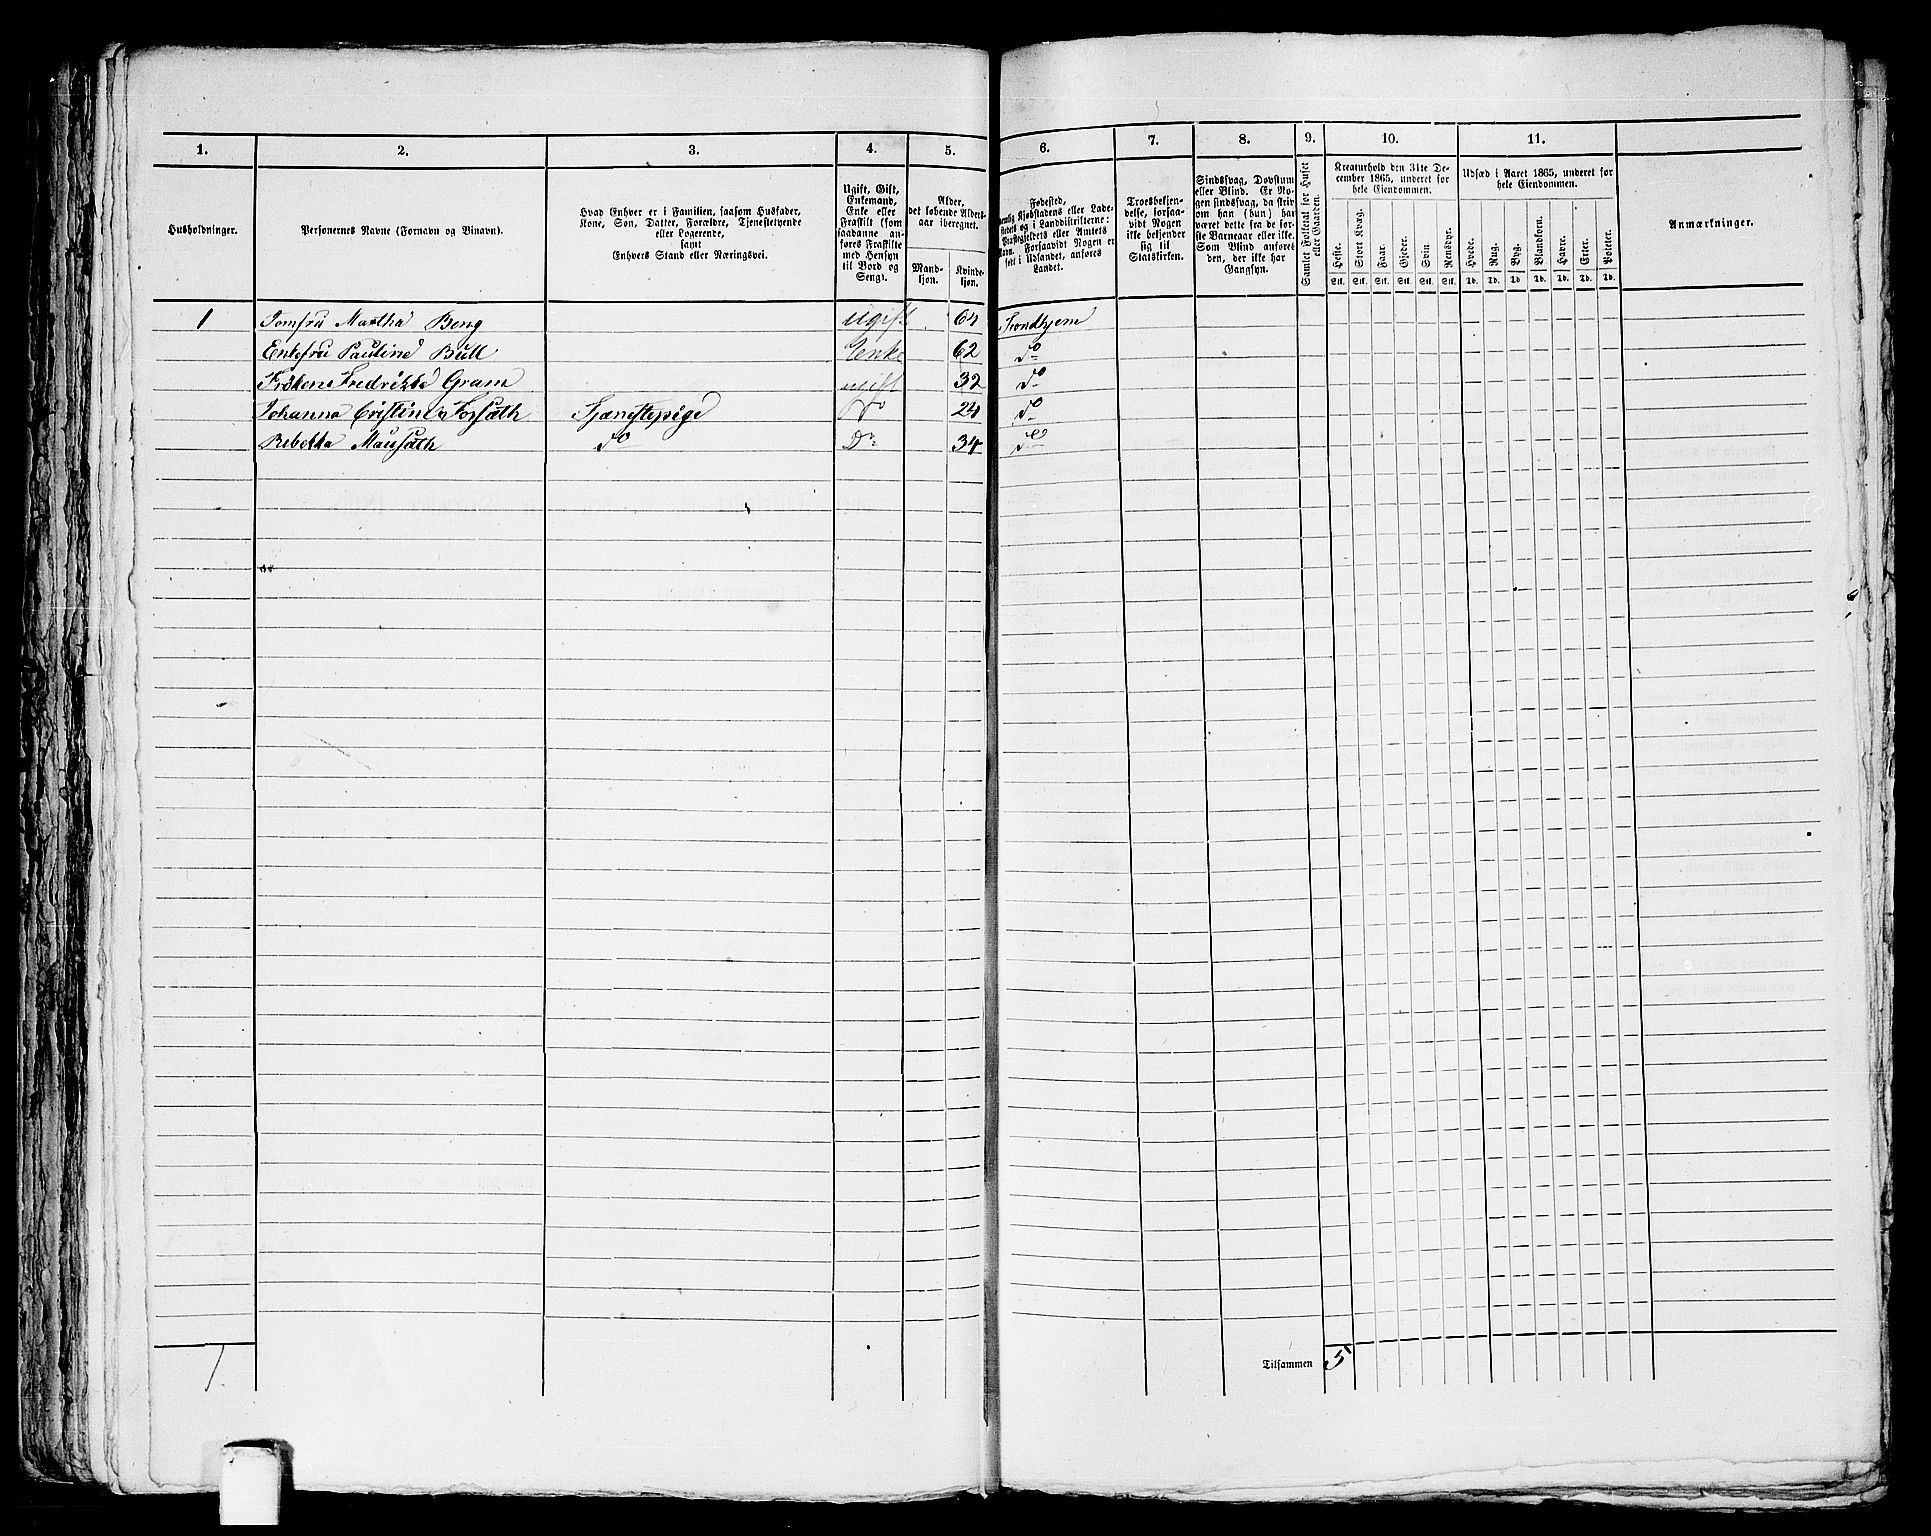 1. 2. 3. 4. 5. 6. 7. 8. 9. 10. 11.
Husholdninger.
Personernes Navne (Fornavn og Binavn).
Hvad Enhver er i Familien, saasom Husfader,
Kone, Søn, Datter, Forældre, Tjenestetyende
eller Logerende,
samt
Enhvers Stand eller Næringsvei.
Ugift, Gift,
Enkemand,
Enke eller
Fraskilt (som
saadanne an-
føres Fraskilte
med Hensyn
til Bord og
Seng).
Alder,
det løbende Alders-
aar iberegnet.
Mand-
kjøn.
Kvinde-
kjøn.
Fødested,
Kjøbstadens eller Lade-
stedets og i Landdistrikterne:
Præstegjeldets eller Amtets
Navn. Forsaavidt Nogen er
født i Udlandet, anføres
Landet.
Troesbekjen-
delse, forsaa-
vidt Nogen
ikke bekjender
sig til
Statskirken.
Sindssvag, Døvstum
eller Blind. Er No-
gen sindssvag, da skriv
om han (hun) har
været dette fra de før-
ste Barneaar eller ikke.
Som Blind anføres
den, der ikke har
Gangsyn.
Samlet Folketal for Huset
eller Gaarden.
Kreaturhold den 31te De-
cember 1865, underet for
hele Eiendommen.
Heste. Stort Kvæg. Faar. Gjeder. Svin Rensdyr.
Stk. Stk. Stk. Stk. Stk. Stk.
Udsæd i Aaret 1865, underet for
hele Eiendommen.
Hvede. Rug. Byg. Blandkorn. Havre. Erter. Poteter.
Td. Td. Td Td. Td. Td. Td.
Anmærkninger.
1 Jomfru Martha Beng ugift 64 Trondhjem
Enkefru Pauline Bull Enke 62 Do
Frøken Fredrikke Gram ugift 32 Do
Johanna Cristine Forsæth Tjenestepige Do 24 Do
Rebekka Mausæth Do Do 34 Do
1. Tilsammen 5